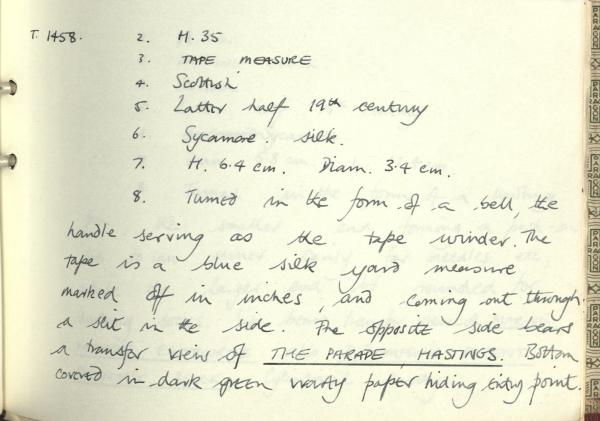 T. 1458. 2. H. 35
3. TAPE MEASURE
4. Scottish
5. Latter half 19th century
6. Sycamore silk.
7. H. 6.4 cm. Diam. 3.4 cm.
8. Turned in the form of a bell, the
handle serving as the tape winder. The
tape is a blue silk yard measure
marked off in inches, and coming out through
a slit in the side. The opposite side bears
a transfer view of THE PARADE, HASTINGS. Bottom
covered in dark green warty paper hiding point.
PARAGON
PARAGON
PARAGON
PARAGON
PARAGON